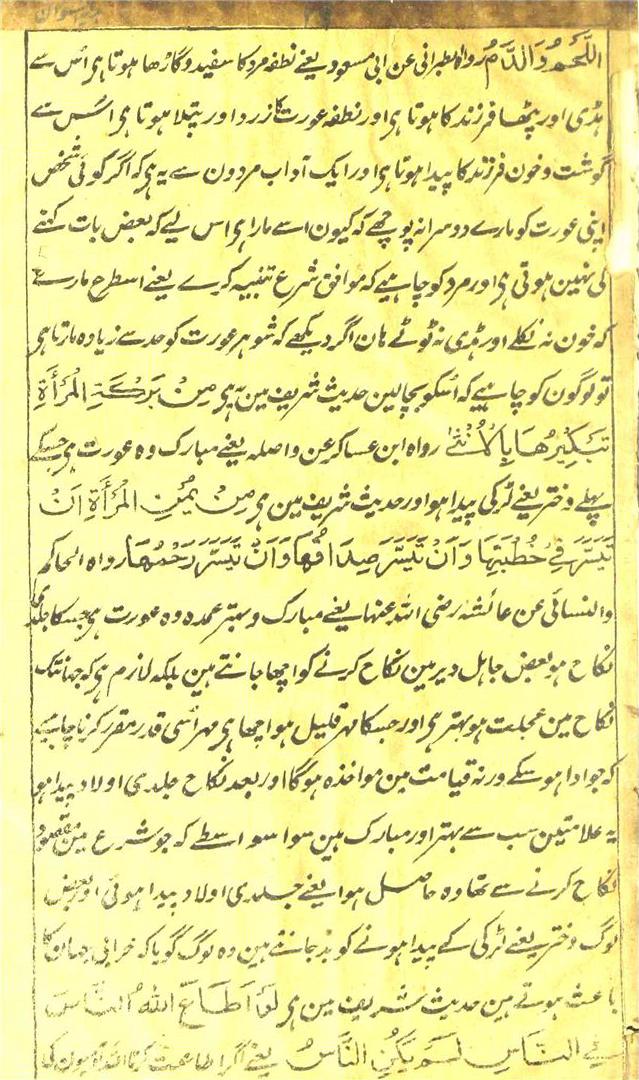 اللَّحْمُ وَالدَّمُ رواه الطبرانی عن ابی مسعود یعنے نطفہ مرد کا سفید و گاڑھا ہوتا ہی اس سے
ہڈی اور پٹھا فرزند کا ہوتا ہی اور نطفہ عورت کا زرد اور پتلا ہوتا ہی اُس سے
گوشت و خون فرزند کا پیدا ہوتا ہی اور ایک آداب مردون سے یہ ہی کہ اگر کوئی شخص
اپنی عورت کو مارے دوسرا نہ پوچھے کہ کیون اسے مارا ہی اس لیے کہ بعض بات کہنے
کی نہین ہوتی ہی اور مرد کو چاہیے کہ موافق شرع تنبیہ کرے یعنے اسطرح مارے
کہ خون نہ نکلے اور ہڈی نہ ٹوٹے ہان اگر دیکھے کہ شوہر عورت کو حد سے زیادہ مارتا ہی
تو لوگون کو چاہیے کہ اُسکو بچالین حدیث شریف مین ہی مِنْ بَرَكَةِ الْمَرْأَةِ
تَبْكِيرُهَا بِالْأُنْثَى رواہ ابن عساکر عن واصلہ یعنے مبارک وہ عورت ہی جسکے
پہلے دختر یعنے لڑکی پیدا ہو اور حدیث شریف مین ہی مِنْ يُمْنِ الْمَرْأَةِ اَنْ
تَيَسَّرَ فِي خُطْبَتِهَا وَاَنْ تَيَسَّرَ صِدَاقُهَا وَاَنْ تَيَسَّرَ رَحْمُهَا رواہ الحاکم
والنسائی عن عائشہ رضی اللہ عنہا یعنے مبارک و بہتر عمدہ وہ عورت ہی جسکا جلدی
نکاح ہو بعض جاہل دیر مین نکاح کرنے کو اچھا جانتے ہین بلکہ لازم ہی کہ جہانتک
نکاح مین عجلت ہو بہتر ہی اور جسکا مہر قلیل ہو اچھا ہی مہر اسی قدر مقرر کرنا چاہیے
کہ جو ادا ہو سکے ورنہ قیامت مین مواخذہ ہوگا اور بعد نکاح جلدی اولاد پیدا ہو
یہ علامتین سب سے بہتر اور مبارک ہین سو اسواسطے کہ جو شرع مین مقصود
نکاح کرنے سے تھا وہ حاصل ہوا یعنے جلدی اولاد پیدا ہوئی اور بعض
لوگ دختر یعنے لڑکی کے پیدا ہونے کو بد جانتے ہین وہ لوگ گویا کہ خرابی جہان کا
باعث ہوتے ہین حدیث شریف مین ہی لَوْ اَطَاعَ اللّٰهُ النَّاسَ
فِي النَّاسِ لَمْ يَكُنِ النَّاسُ یعنے اگر اطاعت کرتا اللہ لوگون کی